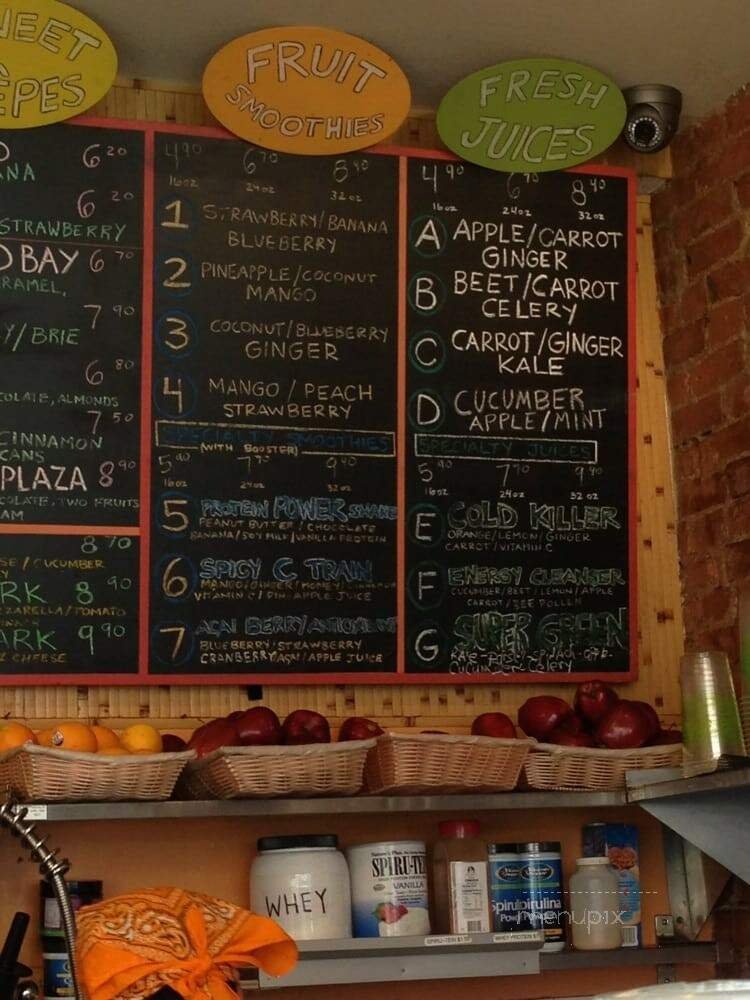 SWEET
CRÊPES
6 20
ANA
6 20
STRAWBERRY
BAY 6 70
7 90
/ BRIE
6 80
ALMONDS
7 50
CINNAMON
PLAZA 8 90
TWO FRUITS
8 70
/ CUCUMBER
8 90
/TOMATO
9 90
CHEESE
FRUIT
SMOOTHIES
4 90 6 70 8 40
16oz 24oz 32oz
1 STRAWBERRY/BANANA
BLUEBERRY
2 PINEAPPLE/COCONUT
MANGO
3 COCONUT/BLUEBERRY
GINGER
4 MANGO / PEACH
STRAWBERRY
SPECIALTY SMOOTHIES
(WITH BOOSTER)
5 90 7 70 9 40
16oz 24oz 32oz
5 PROTEIN POWER SHAKE
PEANUT BUTTER / CHOCOLATE
BANANA/SOY MILK/VANILLA PROTEIN
6 SPICY C TRAIN
MANGO/GINGER/HONEY/
VITAMIN C/PINEAPPLE JUICE
7 ACAI BERRY ANTIOXIDANT
BLUEBERRY/STRAWBERRY
CRANBERRY/ACAI/APPLE JUICE
FRESH
JUICES
4 90 6 70 8 40
16oz 24oz 32oz
A APPLE/CARROT
GINGER
B BEET/CARROT
CELERY
C CARROT/GINGER
KALE
D CUCUMBER
APPLE/MINT
SPECIALTY JUICES
5 90 7 70 9 40
16oz 24oz 32oz
E COLD KILLER
ORANGE/LEMON/GINGER
CARROT/VITAMIN C
F ENERGY CLEANSER
CUCUMBER/BEET/LEMON/APPLE
CARROT/BEE POLLEN
G SUPER GREEN
CUCUMBER CELERY
WHEY
Nature's Plus
SPIRU-TEIN
VANILLA
Spirulina
menupix